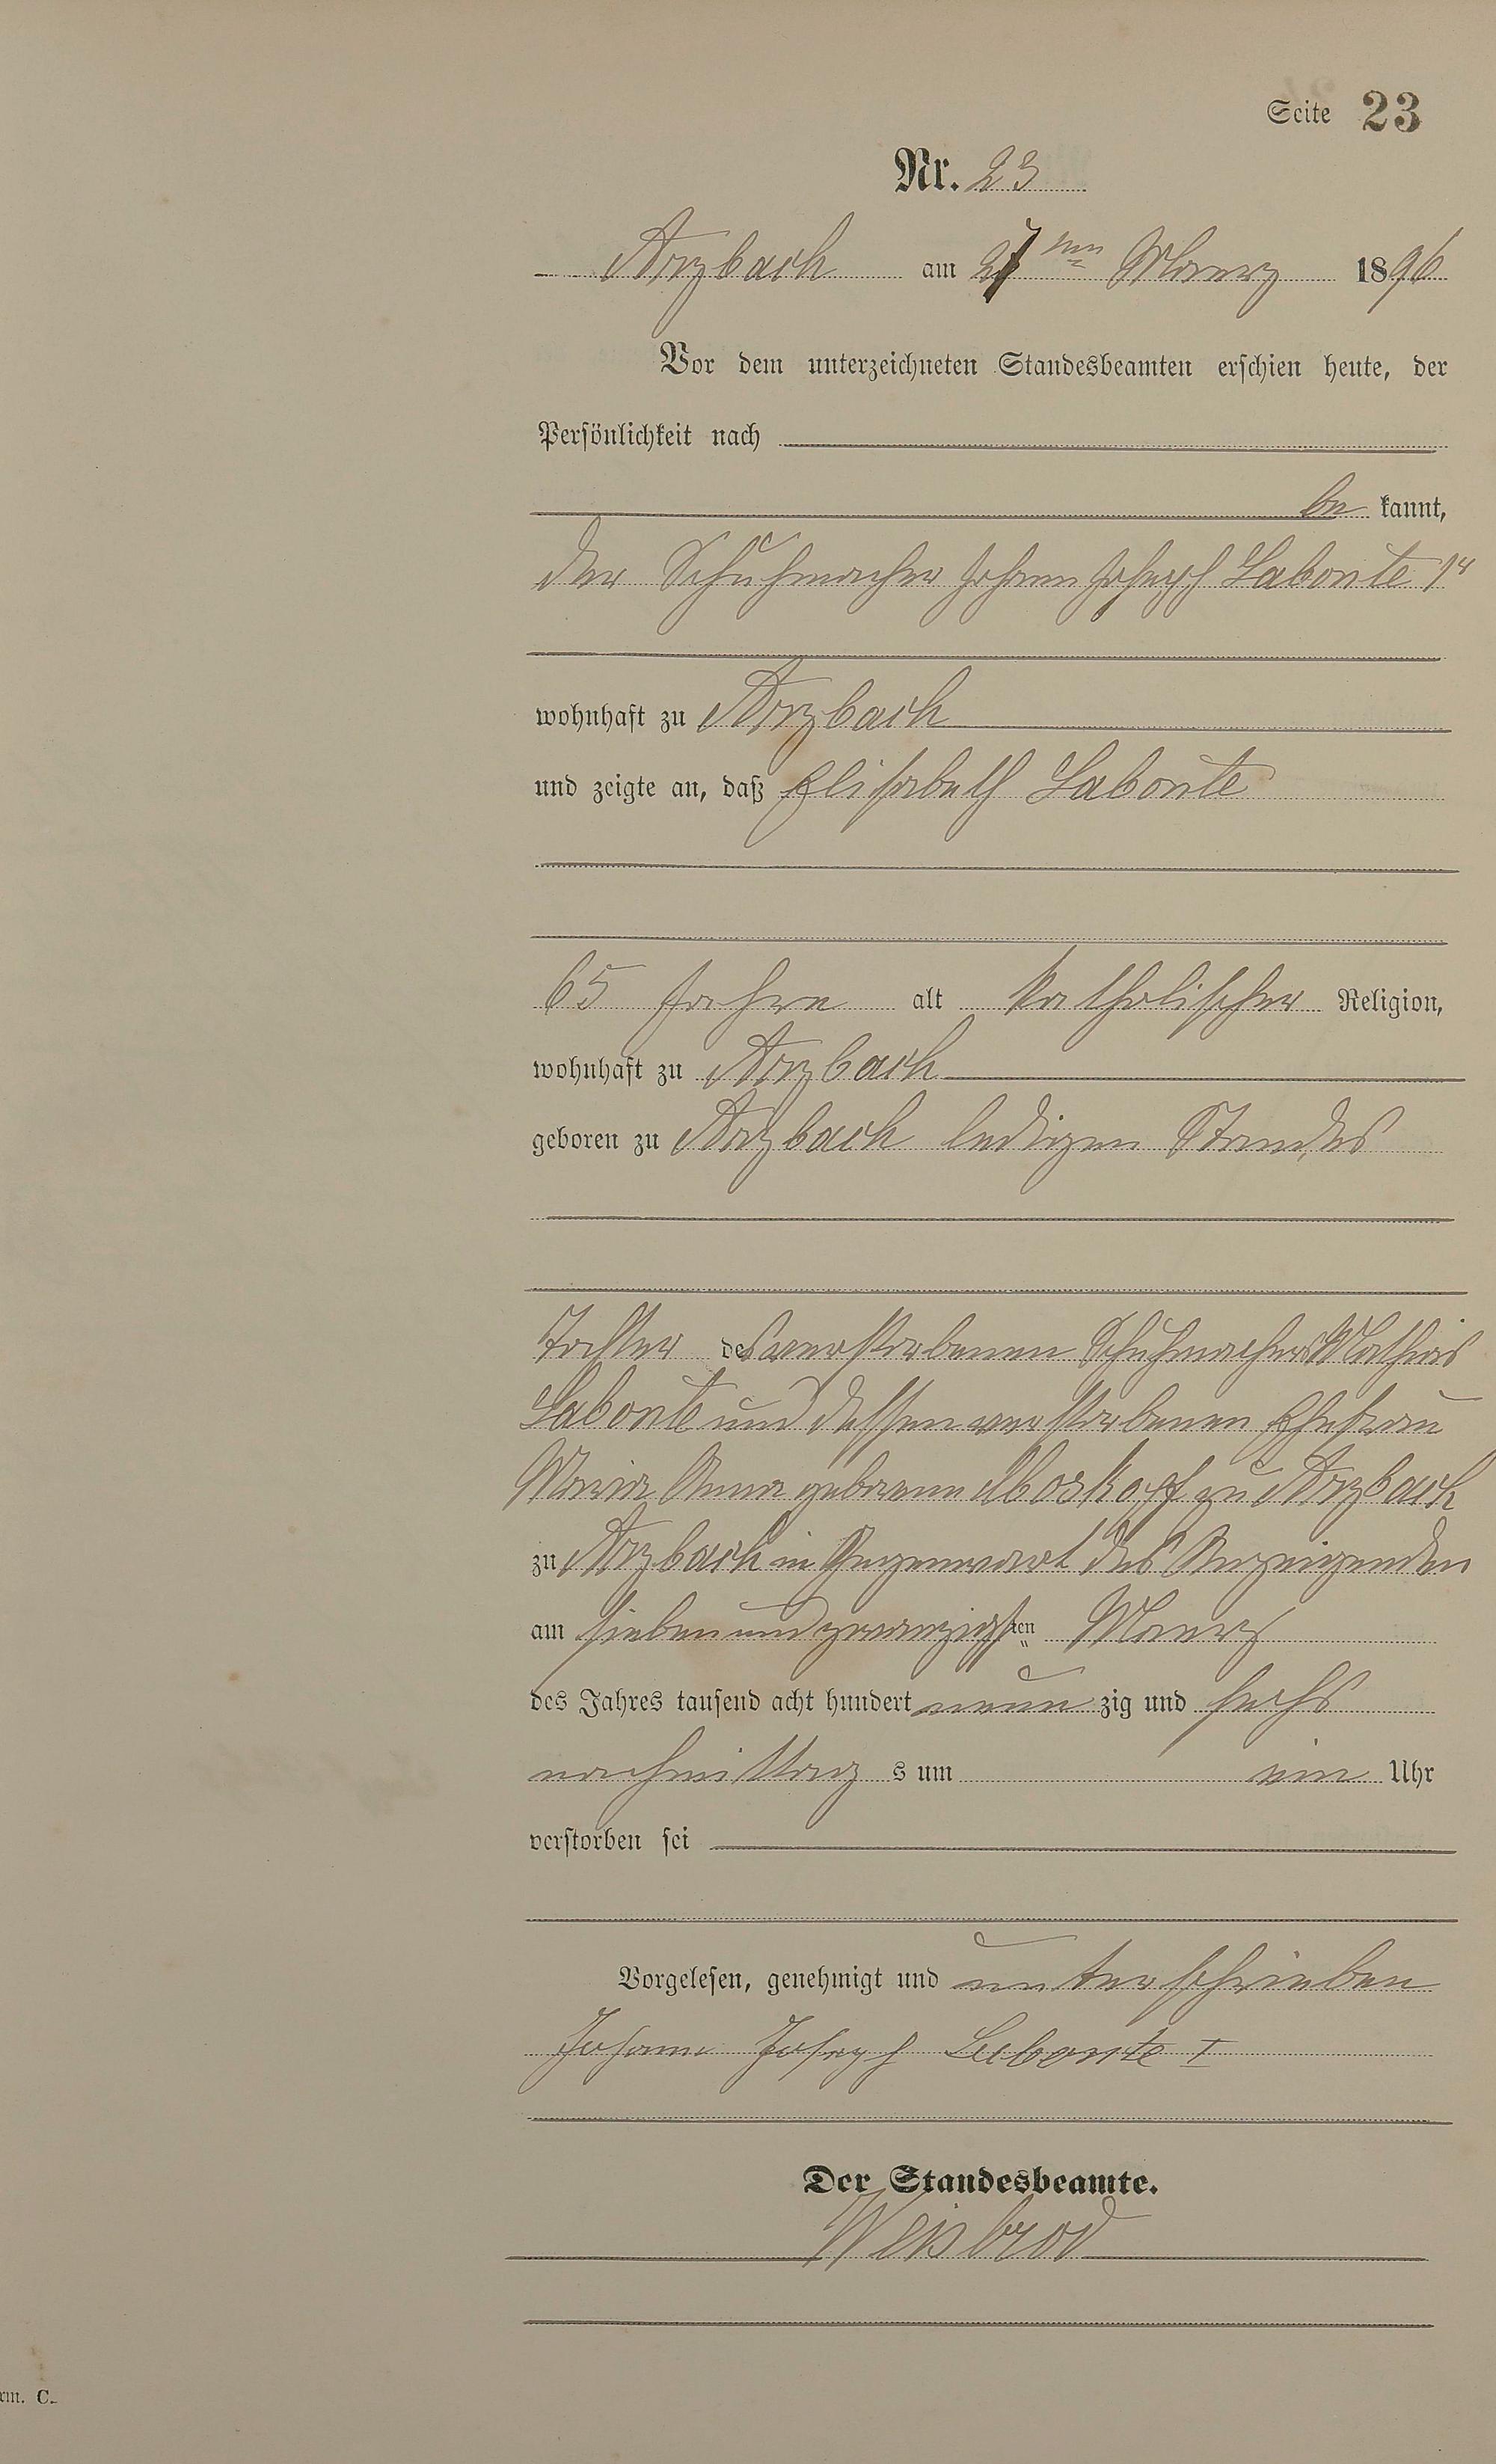 Seite 23
Nr. 23
Arzbach am 27ten Maerz 1896
Vor dem unterzeichneten Standesbeamten erschien heute, der
Persönlichkeit nach
be kannt,
der Schuhmacher Johann Joseph Labonte 1r
wohnhaft zu Arzbach
und zeigte an, daß Elisabeth Labonte
65 Jahre alt katholischer Religion,
wohnhaft zu Arzbach
geboren zu Arzbach ledigen Standes
Tochter des verstorbenen Schuhmachers Mathias
Labonte und dessen verstorbenen Ehefrau
Maria Anna geborene zu Arzbach
zu Arzbach in Gegenwart des Anzeigenden
am siebenundzwanzigsten Maerz
des Jahres tausend acht hundert neun zig und sechs
nachmittag s um ein Uhr
verstorben sei
Vorgelesen, genehmigt und unterschrieben
Johann Joseph Labonte I
Der Standesbeamte.
Weisbrod
rm. C.